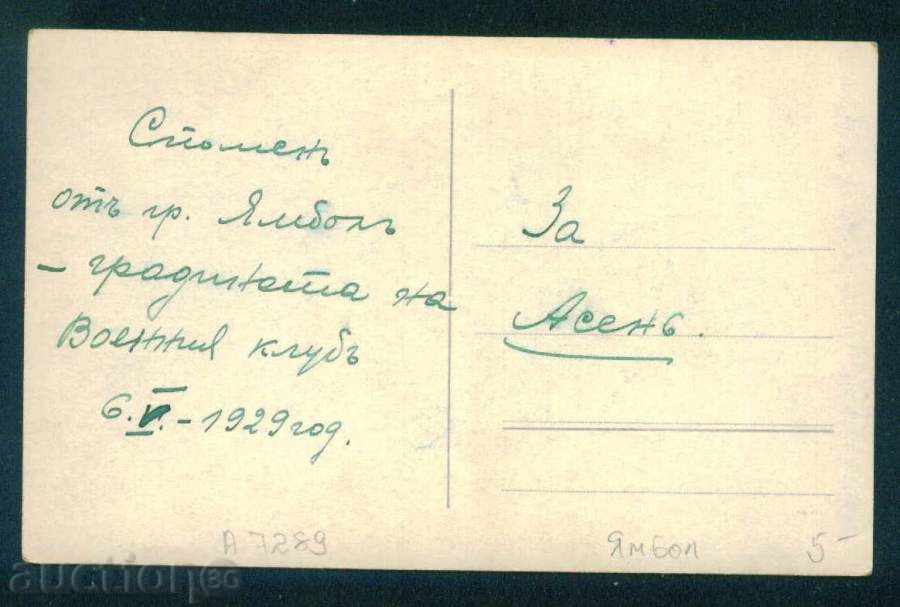 Споменъ
отъ гр. Ямболъ
- градината на
Военния клубъ
6.V.-1929 год.
За
Асенъ.
А 7289
Ямбол
5-
auction.bg